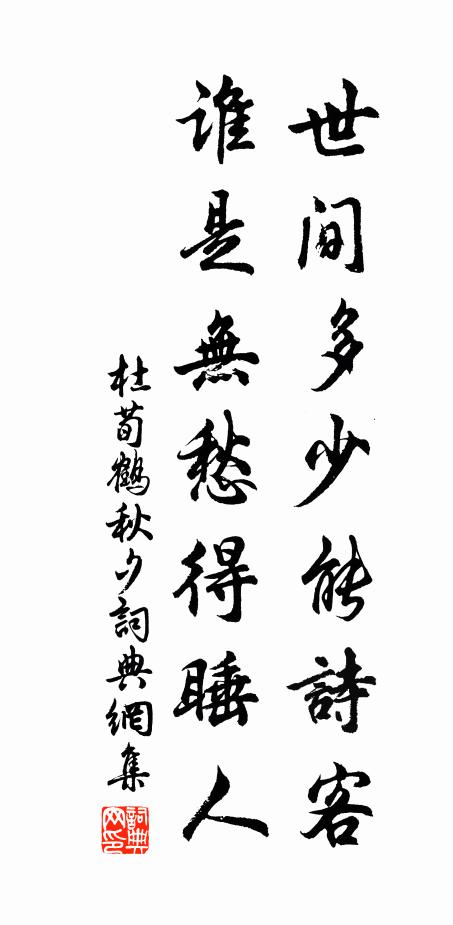 世間多少能詩客
誰是無愁得睡人
杜荀鶴秋夕詞典網集
詞典網印